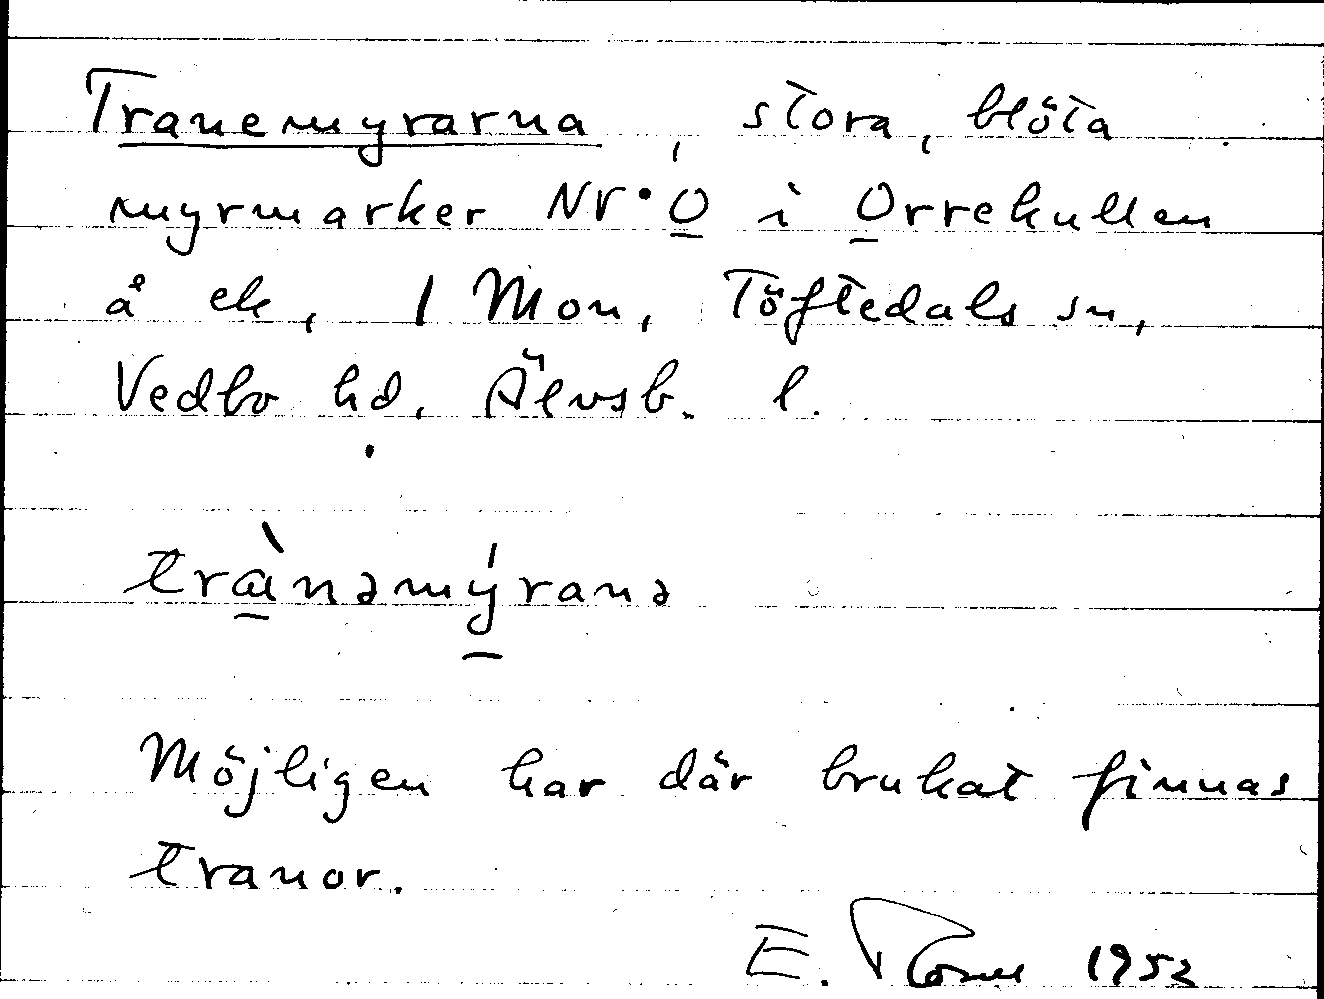 Tranemyrarna, stora, blöta
myrmarker NV·O i Orrekullen
å ek, 1 Mon, Töftedals sn,
Vedbo hd. Älvsb. l.
trà̱nəmý̱ranə
Möjligen har där brukat finnas
tranor.
E. 1952